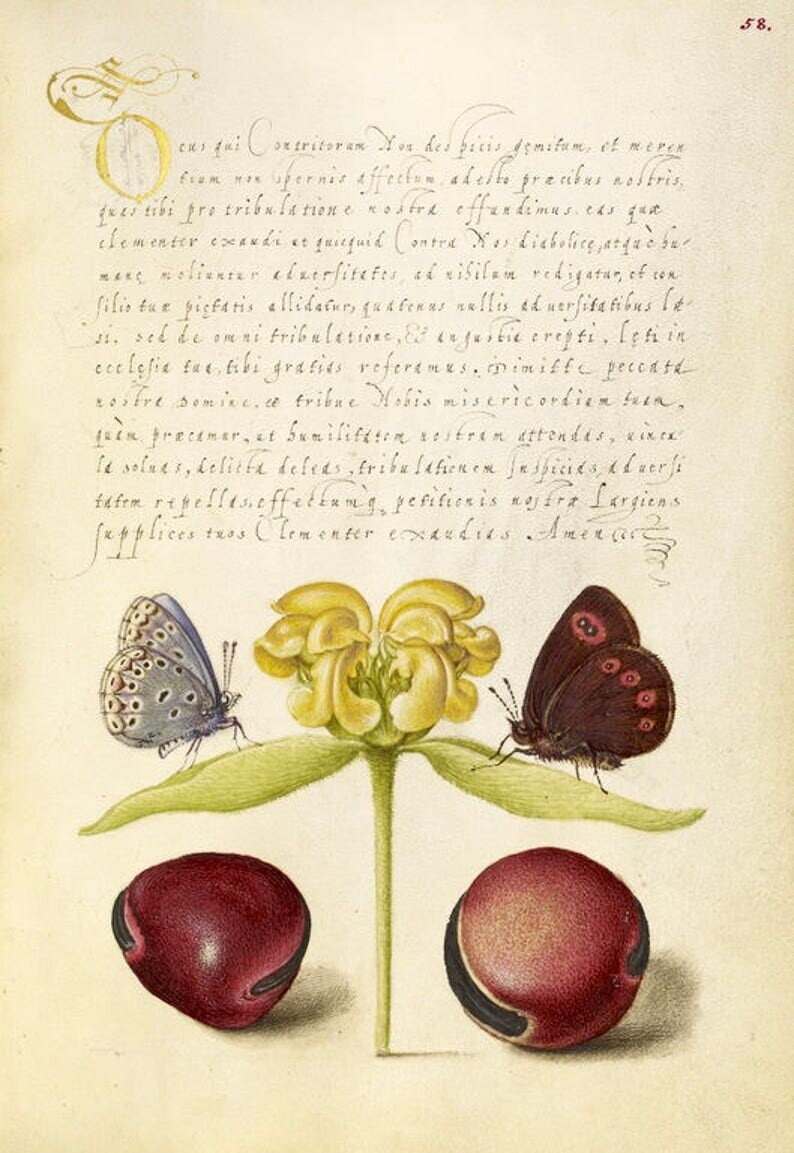 58.
Ocus qui Contritorum Non despicis gemitum, et meren
tium non spernis affectum, adesto præcibus nostris,
quas tibi pro tribulatione nostra effundimus. eas quæ
clementer exaudi ut quicquid Contra Nos diabolicę, atquè hu-
manę moliuntur aduersitates, ad nihilum redigatur, et con
silio tuæ pietatis allidatur, quatenus nullis aduersitatibus læ-
si, sed de omni tribulatione, & angustia erepti, lęti in
ecclęsia tua, tibi gratias referamus. Dimitte peccata
nostra Domine, et tribue Nobis misericordiam tuam,
quàm præcamur, ut humilitatem nostram attendas, uincu-
la soluas, delicta deleas, tribulationem Inspicias, aduersi
tatem repellas, effectumq, petitionis nostræ Largiens
supplices tuos Clementer exaudias. Amen